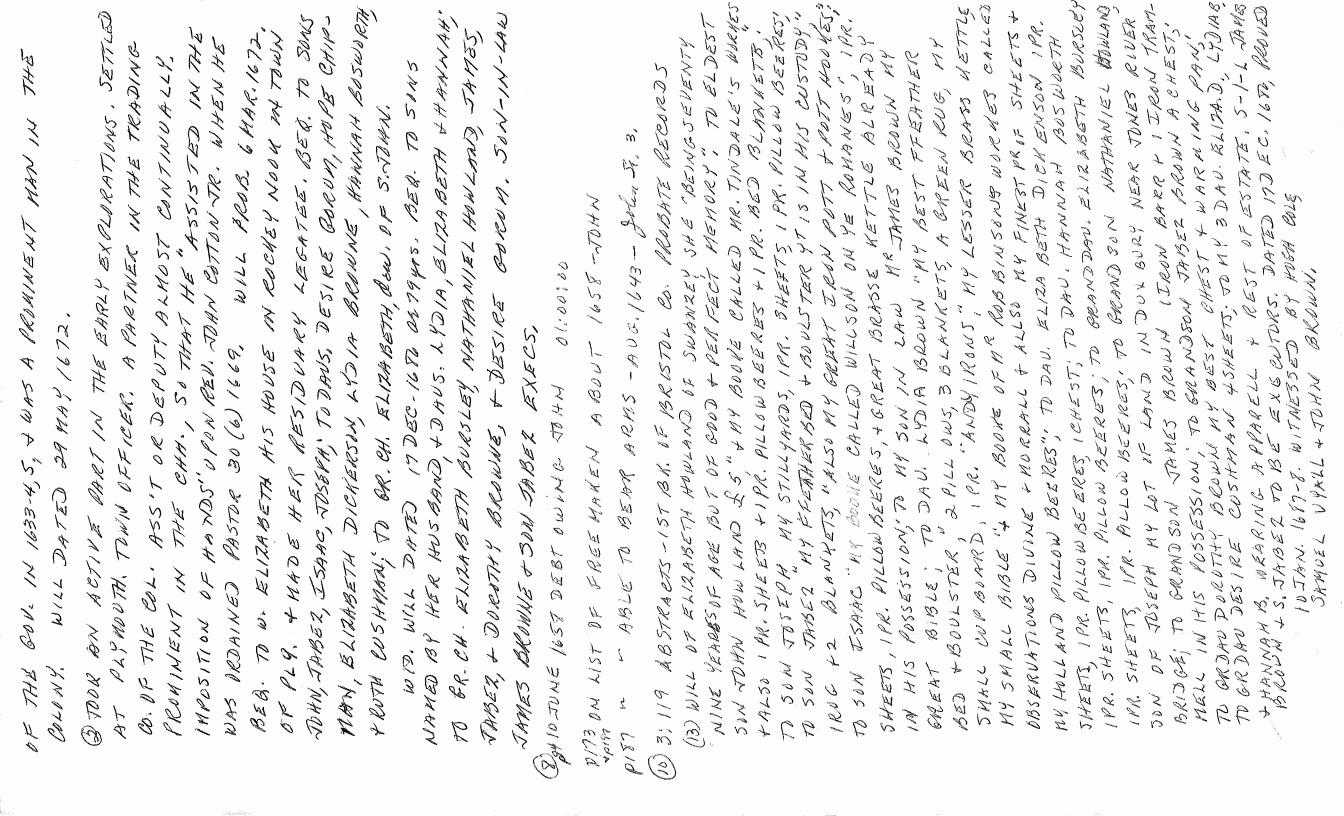 OF THE GOV. IN 1633-4,5, & WAS A PROMINENT MAN IN THE
COLONY. WILL DATED 29 MAY 1672.
② TOOK AN ACTIVE PART IN THE EARLY EXPLORATIONS. SETTLED
AT PLYMOUTH. TOWN OFFICER. A PARTNER IN THE TRADING
CO. OF THE COL. ASS'T OR DEPUTY ALMOST CONTINUALLY.
PROMINENT IN THE CHH., SO THAT HE "ASSISTED IN THE
IMPOSITION OF HANDS" UPON REV. JOHN COTTON JR. WHEN HE
WAS ORDAINED PASTOR 30 (6) 1669. WILL PROB. 6 MAR. 1672.
BEQ. TO W. ELIZABETH HIS HOUSE IN ROCKEY NOOK IN TOWN
OF PLY. & MADE HER RESIDUARY LEGATEE. BEQ. TO SONS
JOHN, JABEZ, ISAAC, JOSEPH; TO DAUS. DESIRE GORUM, HOPE CHIP-
MAN, ELIZABETH DICKERSON, LYDIA BROWNE, HANNAH BOSWORTH,
& RUTH CUSHMAN; TO GR. CH. ELIZABETH, DAU. OF S. JOHN.
WID. WILL DATED 17 DEC. 1686 OR 79 YRS. BEQ. TO SONS
NAMED BY HER HUSBAND, & DAUS. LYDIA, ELIZABETH & HANNAH;
TO GR. CH. ELIZABETH BURSLEY, NATHANIEL HOWLAND, JAMES,
JABEZ, & DOROTHY BROWNE, & DESIRE GORUM. SON-IN-LAW
JAMES BROWNE & SON JABEZ EXECS.
⑧ p910 JUNE 1658 DEBT OWING JOHN 01:00:00
p173 ON LIST OF FREE MAKEN ABOUT 1658 - JOHN
& p197
p187 " " ABLE TO BEAR ARMS - AUG. 1643 - John Sr. 3,
⑩ 3; 119 ABSTRACTS - 1ST BK. OF BRISTOL CO. PROBATE RECORDS
(13) WILL OF ELIZABETH HOWLAND OF SWANZEY, SHE "BEING SEVENTY
NINE YEARS OF AGE BUT OF GOOD & PERFECT MEMORY". TO ELDEST
SON JOHN HOWLAND £5 "& MY BOOKE CALLED MR. TINDALE'S WORKES"
& ALSO 1 PR. SHEETS & 1 PR. PILLOWBEERES & 1 PR. BED BLANKETS";
TO SON JOSEPH "MY STILLYARDS, 1 PR. SHEETS, 1 PR. PILLOW BEERES;
TO SON JABEZ "MY FFETHERBED & BOULSTER YT IS IN HIS CUSTODY",
1 RUG & 2 BLANKETS, "ALSO MY GREAT IRON POTT & POTT HOOKES";
TO SON ISAAC "MY BOOKE CALLED WILLSON ON YE ROMANES", 1 PR.
SHEETS, 1 PR. PILLOW BEERES, & GREAT BRASSE KETTLE ALREADY
IN HIS POSSESSION; TO MY SON IN LAW MR JAMES BROWN MY
GREAT BIBLE; TO DAU. LYDIA BROWN "MY BEST FFEATHER
BED & BOULSTER", 2 PILLOWS, 3 BLANKETS, A GREEN RUG, MY
SMALL CUPBOARD, 1 PR. "ANDYIRONS", MY LESSER BRASS KETTLE
MY SMALL BIBLE "& MY BOOKE OF MR ROBBINSONS WORKES CALLED
OBSERUATIONS DIVINE & MORRALL & ALLSO MY FINEST PR OF SHEETS &
MY HOLLAND PILLOW BEERES"; TO DAU. ELIZABETH DICKENSON 1 PR.
SHEETS, 1 PR. PILLOW BEERES, 1 CHEST; TO DAU. HANNAH BOSWORTH
1 PR. SHEETS, 1 PR. PILLOW BEERES; TO GRANDDAU. ELIZABETH BURSLEY
1 PR. SHEETS, 1 PR. PILLOW BEERES; TO GRANDSON NATHANIEL HOWLAND
SON OF JOSEPH MY LOT OF LAND IN DUXBURY NEAR JONES RIVER
BRIDGE; TO GRANDSON JAMES BROWN 1 IRON BARR & 1 IRON TRAM-
MELL IN HIS POSSESSION; TO GRANDSON JABEZ BROWN A CHEST;
TO GRDAU DOROTHY BROWN MY BEST CHEST & WARMING PAN;
TO GRDAU DESIRE CUSHMAN 4 SHEETS. TO MY 3 DAU. ELIZA. D., LYDIA B.
& HANNAH B. WEARING APPARELL & REST OF ESTATE. S-I-L JAMES
BROWN & S. JABEZ TO BE EXECUTORS. DATED 17 DEC. 1686, PROVED
10 JAN. 1687-8. WITNESSED BY HUGH COLE
SAMUEL VYALL & JOHN BROWN,